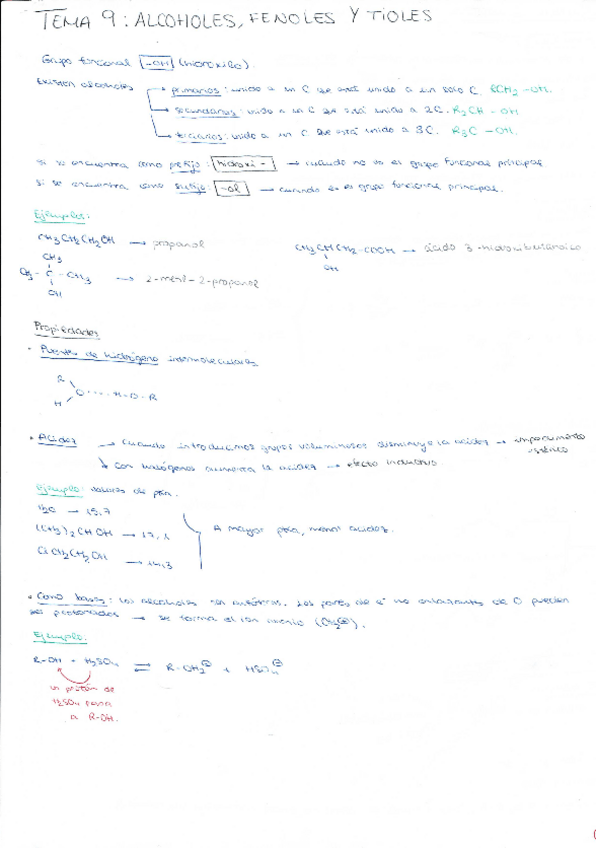 TEMA 9: ALCOHOLES, FENOLES Y TIOLES
Grupo funcional -OH (hidroxilo).
Existen alcoholes
primarios: unido a un C que está unido a un solo C. RCH2-OH.
secundarios: unido a un C que está unido a 2C. R2CH-OH
terciarios: unido a un C que está unido a 3C. R3C-OH.
Si se encuentra como prefijo: hidroxi- → cuando no es el grupo funcional principal
Si se encuentra como sufijo: -ol → cuando es el grupo funcional principal.
Ejemplos:
CH3CH2CH2OH → propanol
CH3CHCH2-COOH → ácido 3-hidroxibutanoico
OH
CH3
CH3-C-CH3 → 2-metil-2-propanol
OH
Propiedades
· Puentes de hidrógeno intermoleculares
R
O ···· H-O-R
H
· Acidez → Cuando introducimos grupos voluminosos disminuye la acidez → impedimento
estérico
↳ Con halógenos aumenta la acidez → efecto inductivo
Ejemplo: valores de pKa.
H2O → 15,7
(CH3)2CHOH → 17,1
A mayor pKa, menor acidez.
ClCH2CH2OH → 14,3
· Como bases: Los alcoholes son anfóteros. Los pares de e- no enlazantes de O pueden
ser protonados → se forma el ion
Ejemplo:
R-OH + H2SO4 ⇌ R-OH2⊕ + HSO4⊖
un protón de
H2SO4 pasa
a R-OH.